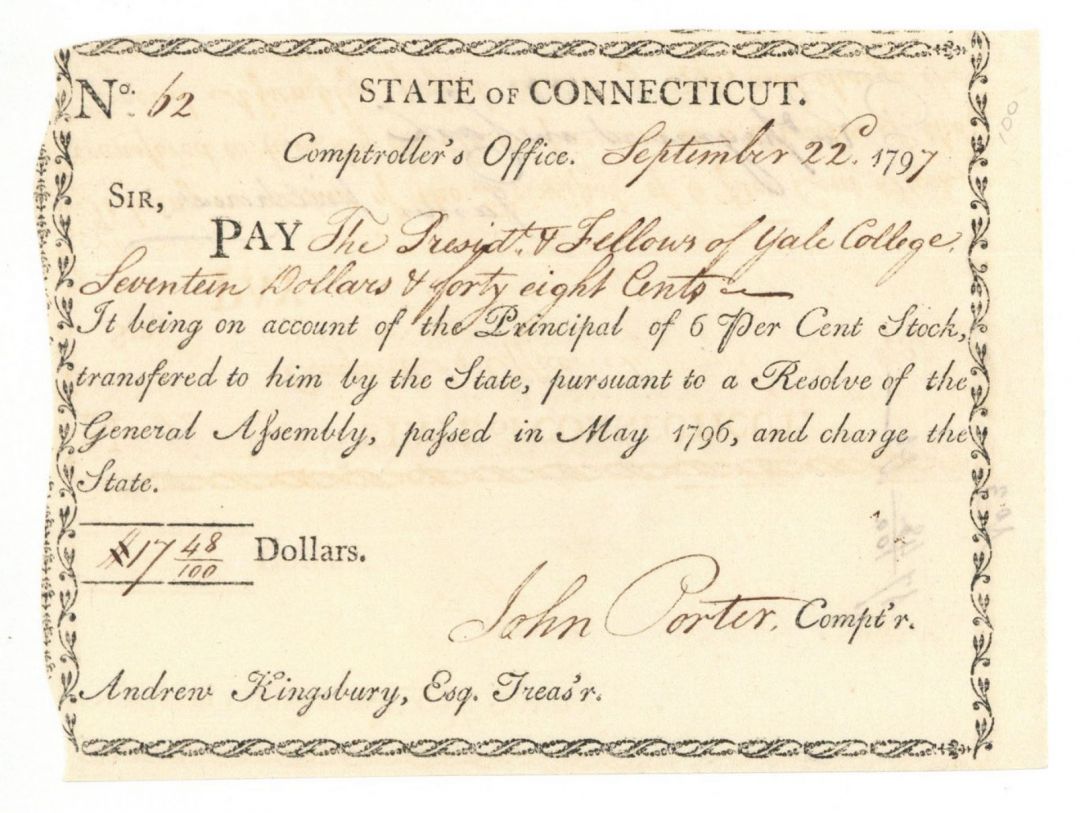 No. 62 STATE OF CONNECTICUT.
Comptroller's Office. September 22d. 1797
SIR,
PAY The Presidt. & Fellows of Yale College.
Seventeen Dollars & forty eight Cents
It being on account of the Principal of 6 Per Cent Stock,
transfered to him by the State, pursuant to a Resolve of the
General Assembly, passed in May 1796, and charge the
State.
$17 48/100 Dollars.
John Porter, Compt'r.
Andrew Kingsbury, Esq. Treas'r.
100